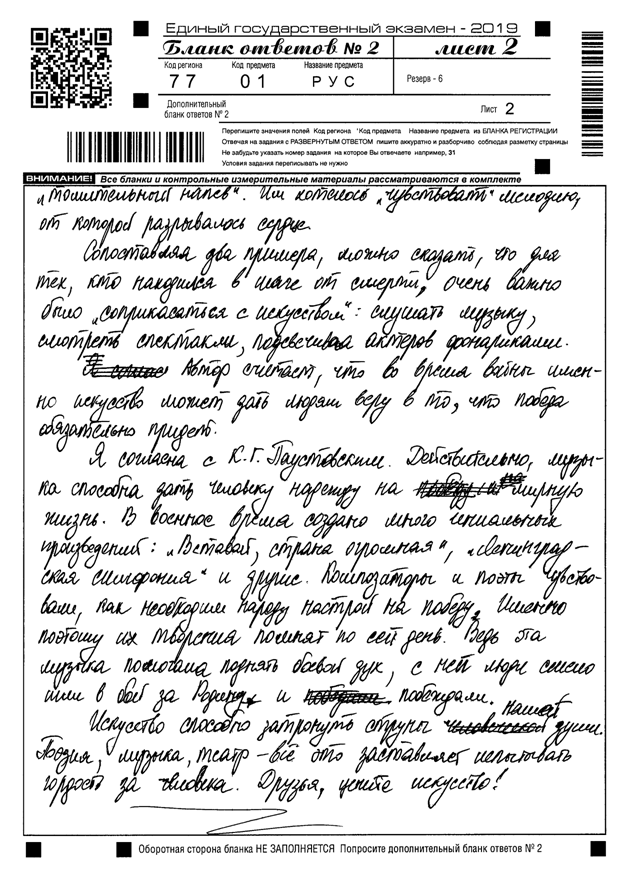 Единый государственный экзамен - 2019
Бланк ответов № 2 лист 2
Код региона Код предмета Название предмета
77 01 РУС Резерв - 6
Дополнительный
бланк ответов № 2
Лист 2
Перепишите значения полей Код региона Код предмета Название предмета из БЛАНКА РЕГИСТРАЦИИ
Отвечая на задания с РАЗВЕРНУТЫМ ОТВЕТОМ пишите аккуратно и разборчиво соблюдая разметку страницы
Не забудьте указать номер задания на которое Вы отвечаете например, 31
Условия задания переписывать не нужно
ВНИМАНИЕ! Все бланки и контрольные измерительные материалы рассматриваются в комплекте
"томительный напев". Им хотелось "чувствовать" мелодию,
от которой разрывалось сердце.
Сопоставляя два примера, можно сказать, что для
тех, кто находился в шаге от смерти, очень важно
было "соприкасаться с искусством": слушать музыку,
смотреть спектакли, подсвечивая актеров фонариками.
Автор считает, что во время войны имен-
но искусство может дать людям веру в то, что победа
обязательно придет.
Я согласна с К.Г. Паустовским. Действительно, музы-
ка способна дать человеку надежду на мирную
жизнь. В военное время создано много гениальных
произведений: "Вставай, страна огромная", "Ленинград-
ская симфония" и другие. Композиторы и поэты чувство-
вали, как необходим народу настрой на победу. Именно
поэтому их творения помнят по сей день. Ведь эта
музыка помогала поднять боевой дух, с ней люди смело
шли в бой за Родину и побеждали.
Искусство способно затронуть струны нашей души.
Поэзия, музыка, театр – всё это заставляет испытывать
гордость за человека. Друзья, цените искусство!
Оборотная сторона бланка НЕ ЗАПОЛНЯЕТСЯ Попросите дополнительный бланк ответов № 2